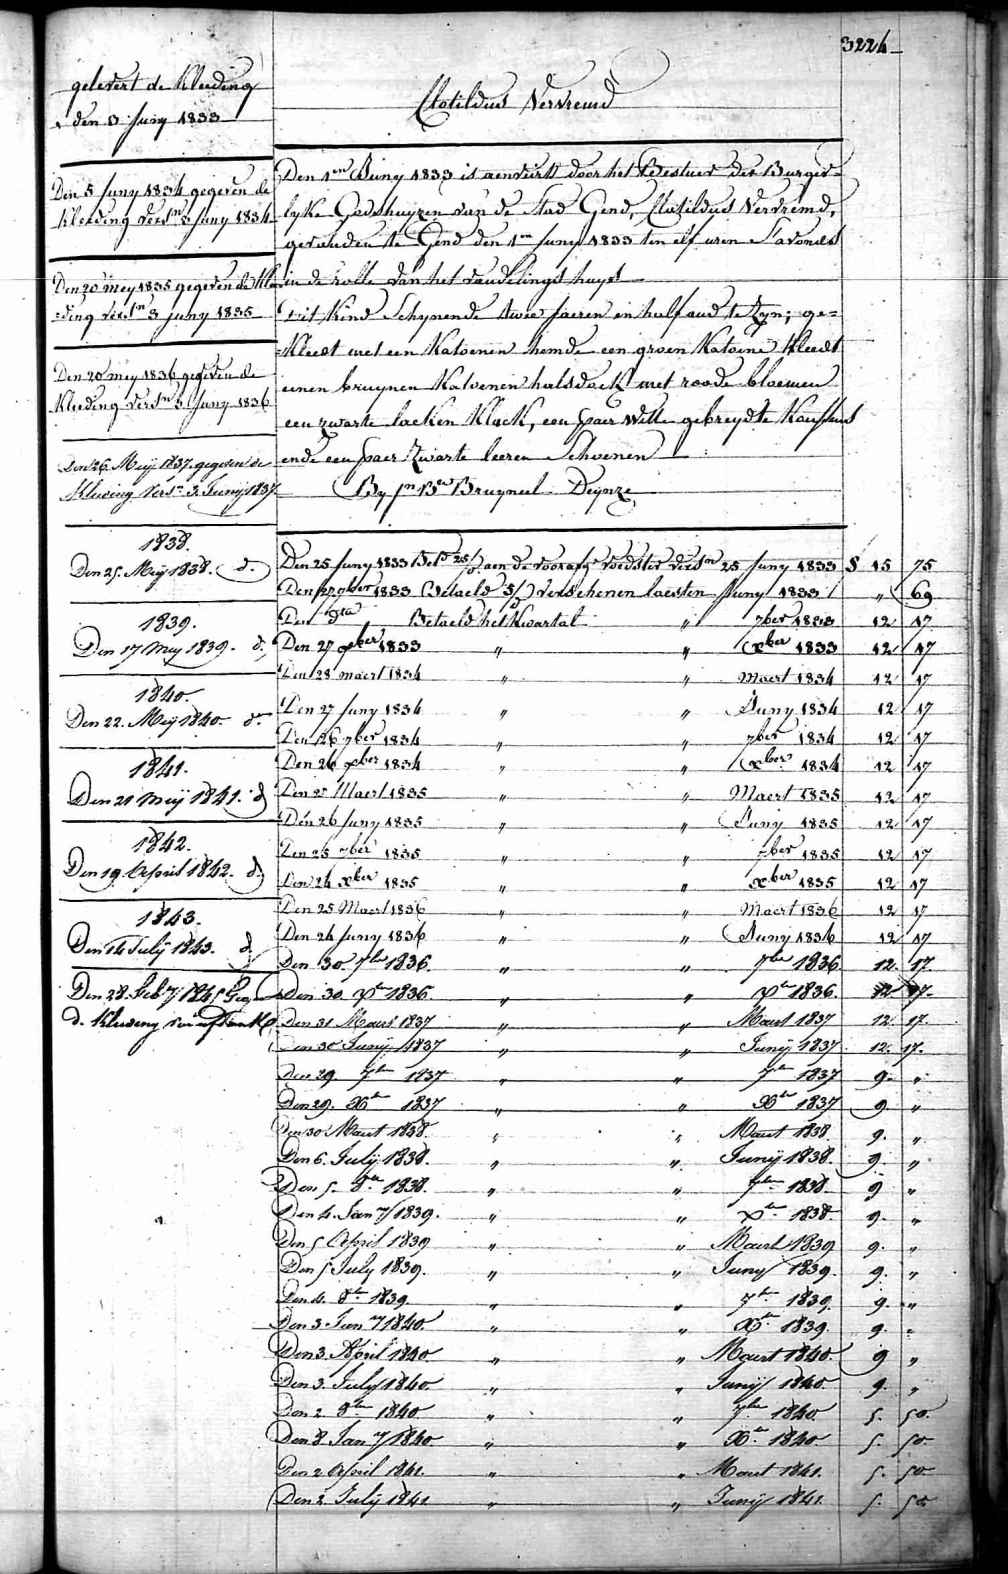 3224
gelevert de Kleeding
den 3 Juny 1833
Clotildus Vervremd
Den 5 Juny 1834 gegeven de
kleeding versn 3 Juny 1834
Den 20 mey 1835 gegeven de Klee
=ding versn 3 juny 1835
Den 20 mey 1836 gegeven de
Kleeding versn 3 Juny 1836
Den 26 Meij 1837 gegeven de
Kleeding versn 3 Junij 1837
1838.
Den 25. Meij 1838. d.
1839.
Den 17 Meij 1839. d.
1840.
Den 22. Meij 1840. do.
1841.
Den 21 Meij 1841. d
1842.
Den 19. April 1842. d.
1843.
Den 14 July 1843. d.
Den 28. feby 1845 Geg
d. Kleedeng
Den 1en Juny 1833 is aenveirt door het Bestuer der Burger=
lyke Godshuyzen van de Stad Gend, Clotildus Vervremd,
gevonden te Gend den 1en Juny 1833 ten elf uren s'avonds
in de rolle van het vondelingshuys
Dit Kind Schynende twee jaeren en half oud te Zyn; ge=
=kleedt met een Katoenen hemde een groen Katoene Kleedt
eenen bruynen Katoenen halsdoek met roode bloemen
een zwarte laeken Klack, een paer witte gebreyde Kaussens
ende een paer Zwarte leeren Schoenen
By Jn Bte Bruyneel Deynze
Den 25 Juny 1833 Betd 25/ aen de voorafge voedster versn 25 Juny 1833 § 15 75
Den 27 7ber 1833 Betaeld 5/ verschenen laesten Juny 1833 " 69
Den dito Betaeld het Kwartal " 7ber 1833 12 17
Den 27 xber 1833 " " xber 1833 12 17
Den 28 maert 1834 " " Maert 1834 12 17
Den 27 Juny 1834 " " Juny 1834 12 17
Den 26 7ber 1834 " " 7ber 1834 12 17
Den 26 xber 1834 " " xber 1834 12 17
Den 27 Maert 1835 " " Maert 1835 12 17
Den 26 Juny 1835 " " Juny 1835 12 17
Den 25 7ber 1835 " " 7ber 1835 12 17
Den 24 xber 1835 " " xber 1835 12 17
Den 25 Maert 1836 " " Maert 1836 12 17
Den 24 Juny 1836 " " Juny 1836 12 17
Den 30. 7ber 1836. " " 7ber 1836 12. 17.
Den 30. xber 1836. " " xber 1836. 12 17.
Den 31 Maert 1837 " " Maert 1837 12 17.
Den 30 Junij 1837 " " Junij 1837 12. 17.
Den 29 7ber 1837 " " 7ber 1837 9. "
Den 29. Xber 1837 " " Xber 1837 9. "
Den 30 Maert 1838. " " Maert 1838. 9. "
Den 6. Julij 1838. " " Junij 1838. 9. "
Den 5. 8ber 1838. " " 7ber 1838. 9 "
Den 4. Jany 1839. " " xber 1838. 9. "
Den 5 April 1839 " " Maert 1839 9. "
Den 5 July 1839. " " Juny 1839. 9. "
Den 4. 8ber 1839. " " 7ber 1839. 9. "
Den 3 Jany 1840. " " Xber 1839. 9. "
Den 3. April 1840 " " Maert 1840. 9 "
Den 3. July 1840. " " Junij 1840. 9. "
Den 2 8ber 1840 " " 7ber 1840. 5. 50.
Den 8 Jany 1840 " " Xber 1840. 5. 50.
Den 2 April 1841. " " Maert 1841. 5. 50
Den 2 Julij 1841 " " Junij 1841. 5. 50